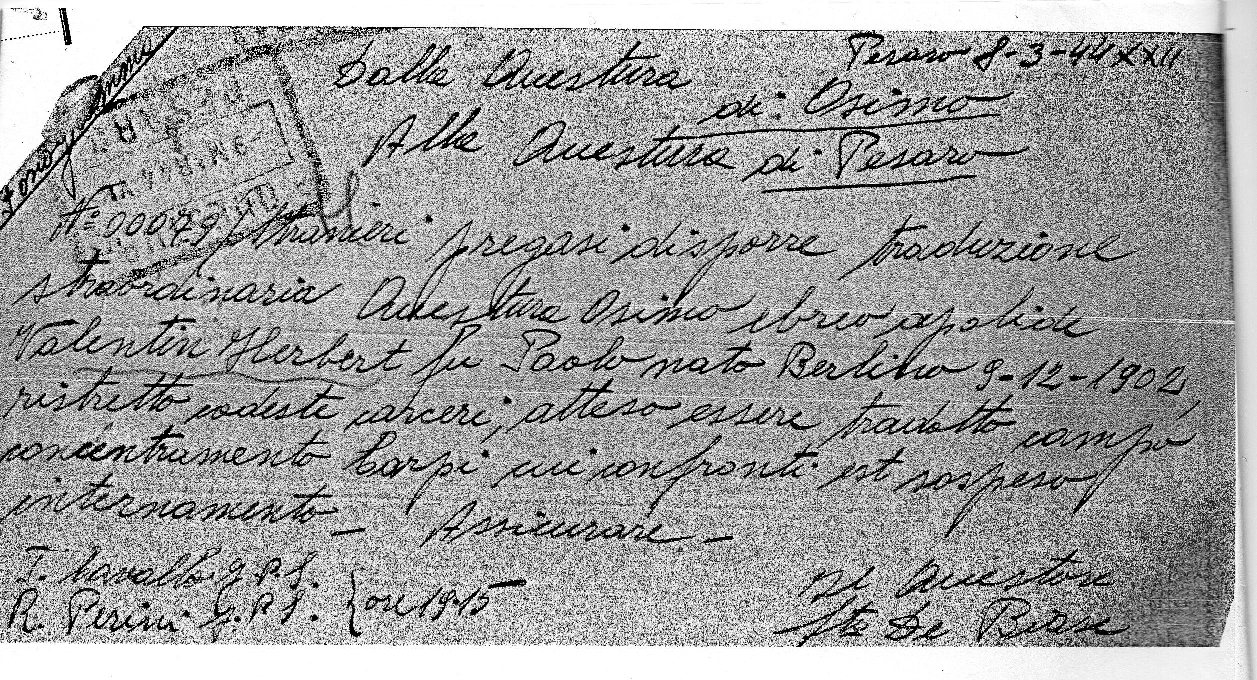 Pesaro 8-3-44 XXII
Dalla Questura
di Osimo
Alla Questura di Pesaro
N° 00079 Stranieri pregasi disporre traduzione
straordinaria Questura Osimo ebreo apolide
Valentin Herbert fu Paolo nato Berlino 9-12-1902,
ristretto codeste carceri, atteso essere tradotto campo
concentramento Carpi cui confronti est sospeso
internamento - Assicurare -
Il Questore
T. Cavallo g.P.S.
R. Perini g.P.S. { ore 19.15